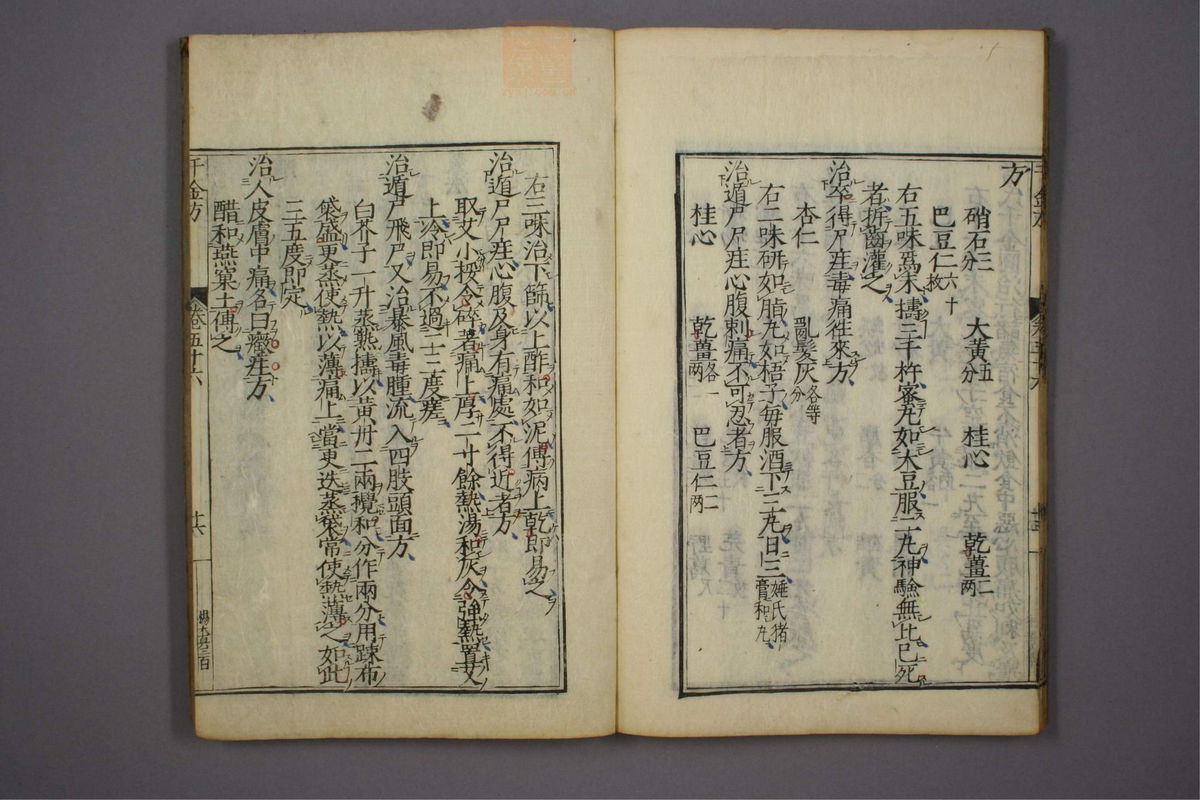 方
硝石三分 大黄五分 桂心 乾薑二兩
巴豆仁六十枚
右五味爲末擣三千杵蜜丸如大豆服二丸神驗無比已死
者折齒灌之
治卒得尸疰毒痛往來方
杏仁 亂髪灰各等分
右二味研如脂丸如梧子毎服酒下三丸日三姚氏猪膏和丸
治遁尸尸疰心腹刺痛不可忍者方
桂心 乾薑各一兩 巴豆仁二兩
右三味治下篩以上酢和如泥傅病上乾即易之
治遁尸尸疰心腹及身有痛處不得近者方
取艾小挼令碎著痛上厚二寸餘熱湯和灰令強熱置艾
上冷即易不過二三度瘥
治遁尸飛尸又治暴風毒腫流入四肢頭面方
白芥子一升蒸熟擣以黄丹二兩攪和分作兩分用疎布
袋盛更蒸使熱以薄痛上當更迭蒸袋常使熱薄之如此
三五度即定
治人皮膚中痛名曰癥疰方
醋和燕窠土傅之
千金方 卷五十六 廿六